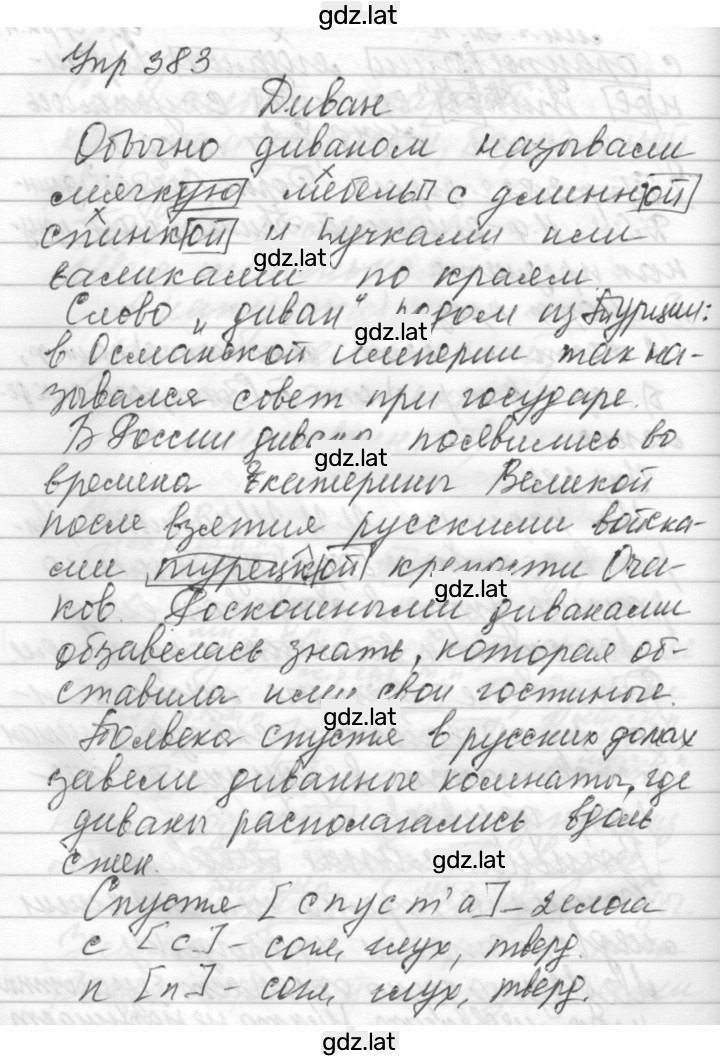 gdz.lat
Упр 383
Диван
Обычно диваном называли
мягкую мебель с длинной
спинкой и ручками или
gdz.lat
валиками по краям.
Слово „диван" родом из Турции:
gdz.lat
в Османской империи так на-
зывался совет при государе.
В России диваны появились во
gdz.lat
времена Екатерины Великой
после взятия русскими войска-
ми турецкой крепости Оча-
gdz.lat
ков. Роскошными диванами
обзавелась знать, которая об-
ставила ими свои гостиные.
gdz.lat
Полвека спустя в русских домах
завели диванные комнаты, где
диваны располагались вдоль
стен.
gdz.lat
Спустя [спуст'а] – 2 слога
с [с] – согл, глух, тверд.
п [п] – согл, глух, тверд.
gdz.lat